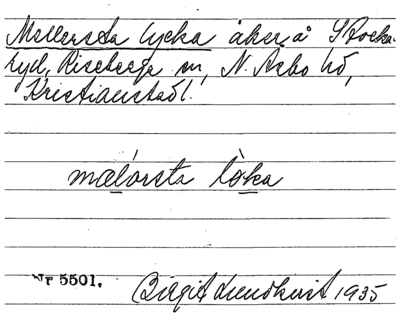 Mellersta lycka åker å Stocka-
ryd, Riseberga sn, N. Åsbo hd,
Kristianstad l.
mælórsta lòka
Nr 5501.
Birgit Lundkvist 1935